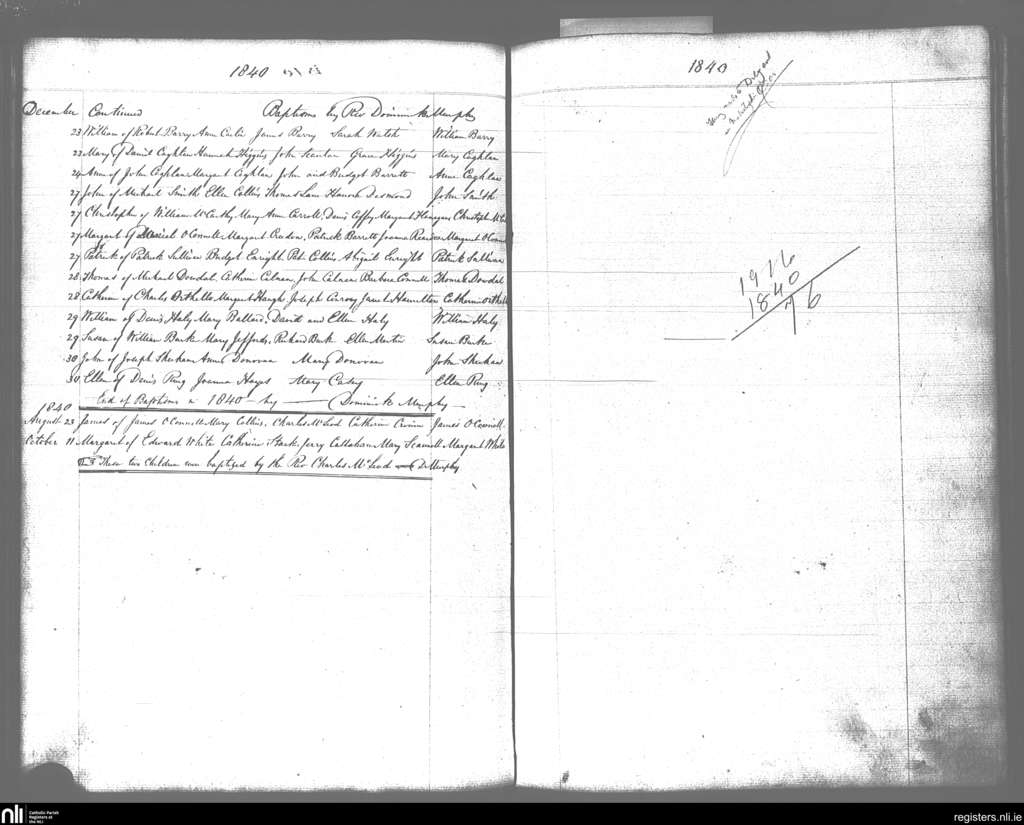 1840
December Continued Baptisms by Rev Dominick Murphy
23 William of Robert Barry Ann Carlie James Barry Sarah William Barry
23 Mary of Daniel Coghlan Hannah Higgins John Scanlan Grace Higgins Mary Coghlan
24 Anne of John Coghlan Margaret Coghlan John and Bridget Barrett Anne Coghlan
27 John of Michael Smith Ellen Collins Thomas Lane Hanora Desmond John Smith
27 Christopher of William McCarthy Mary Ann Carroll Denis Coffey Margaret Christoph
27 Margaret of O Connell Margaret Creedon, Patrick Barrett Joanna Margaret O
27 Patrick of Patrick Sullivan Bridget Enright Patk Collins Abigail Enright Patrick Sullivan
28 Thomas of Michael Dowdal Catherine John Connell Thomas Dowdal
28 Catherine of Charles Margaret Haugh Joseph Conroy Janet Hamilton Catherine
29 William of Denis Haly Mary Ballard, David and Ellen Haly William Haly
29 Susan of William Burke Mary Jeffords, Richard Burke Ellen Martin Susan Burke
30 John of Joseph Sheehan Anne Donovan Mary Donovan John Sheehan
30 Ellen of Denis Ring Joanna Hayes Mary Casey Ellen Ring
End of Baptisms in 1840 by Dominick Murphy
1840
August 23 James of James O Connell Mary Collins, Charles McLeod Catherine Cronin James O Connell
October 11 Margaret of Edward White Catherine Stack, Jerry Callahan Mary Scannell Margaret White
These two Children were baptized by the Rev Charles McLeod D Murphy
1840
1916
1840
76
nli
Catholic Parish
Registers at
the NLI
registers.nli.ie